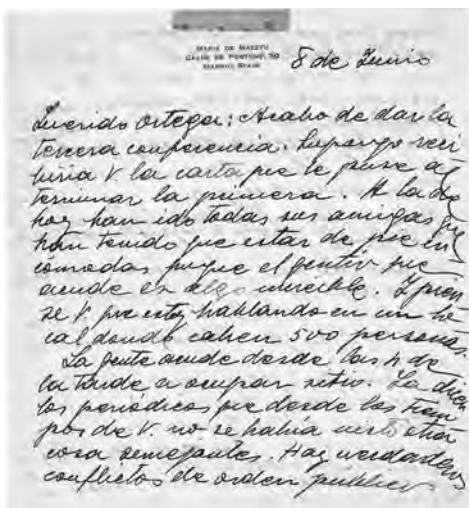 MARIA DE MAEZTU
CALLE DE FORTUNY, 30
MADRID, SPAIN
8 de Junio
Querido Ortega: Acabo de dar la
tercera conferencia. Supongo reci
biria V. la carta que le puse al
terminar la primera. A la de
hoy han ido todas sus amigas que
han tenido que estar de pie in
cómodas porque el gentío que
acude es algo increible. Y pien
se V. que estoy hablando en un lo
cal donde caben 500 personas.
La gente acude desde las 4 de
la tarde a ocupar sitio. Ya dicen
los periódicos que desde los tiem
pos de V. no se habia visto otra
cosa semejante. Hay verdaderos
conflictos de orden público